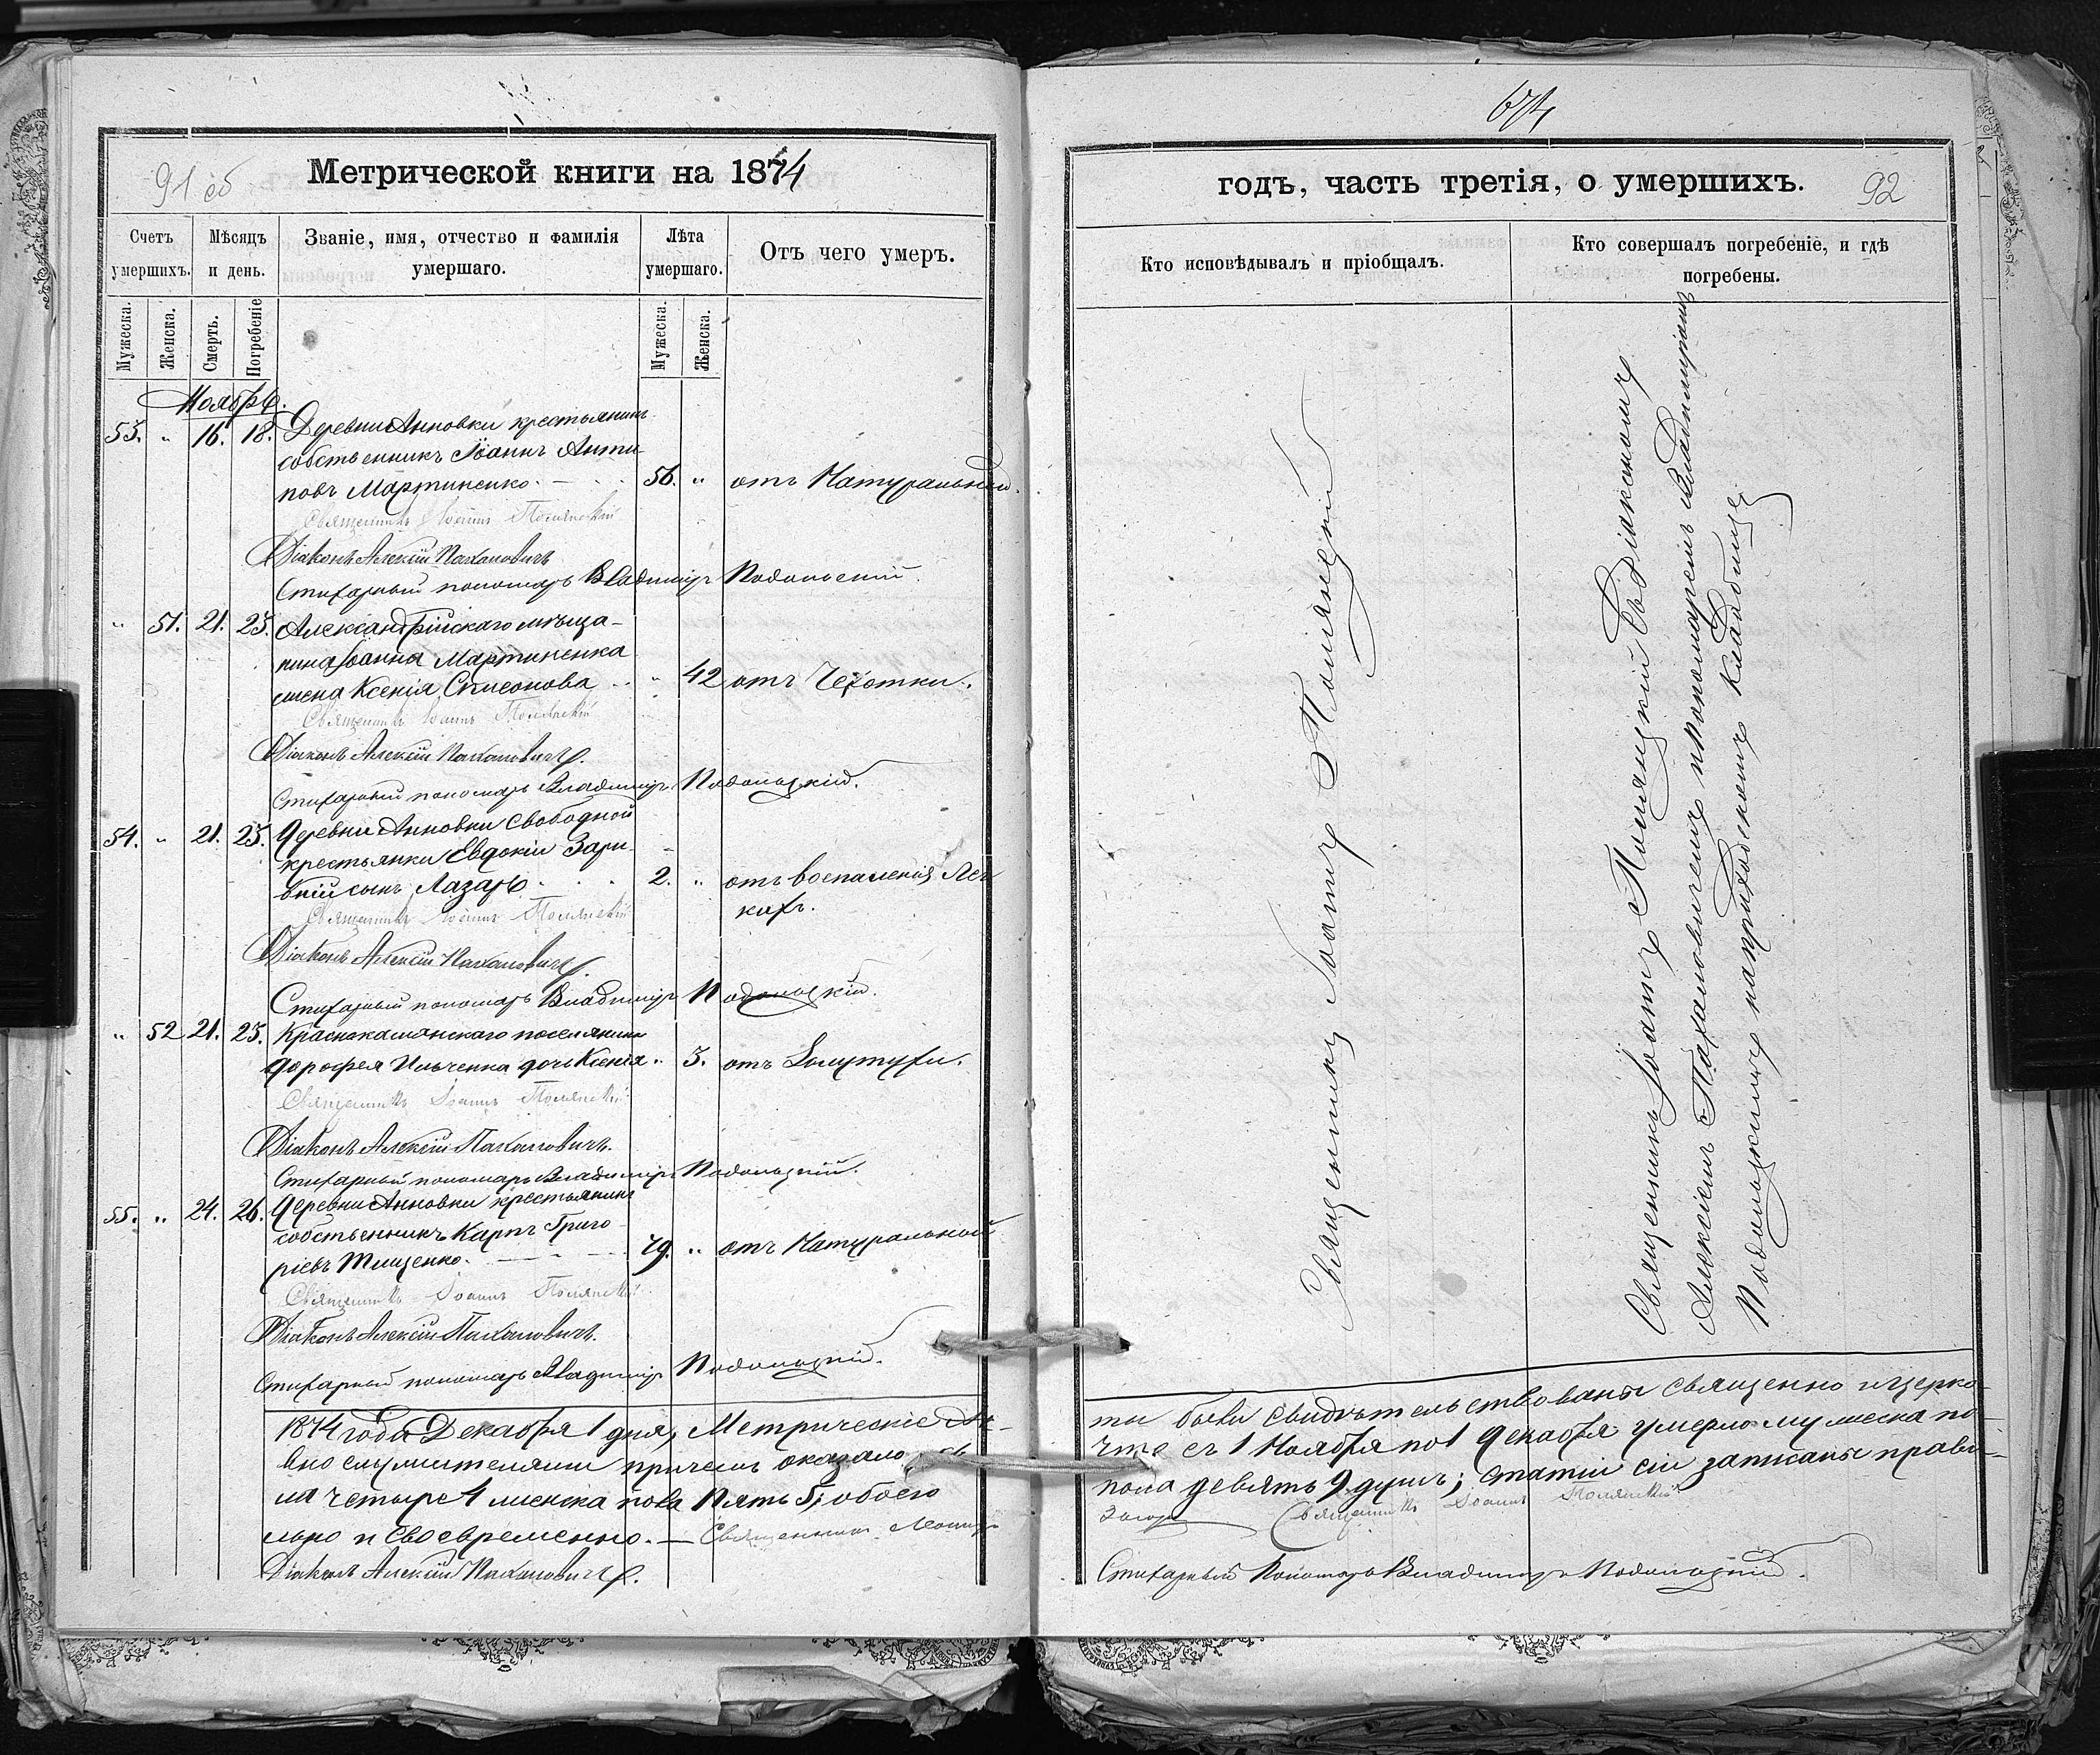 91 об
Метрической книги на 1874
Счетъ умершихъ.
Мѣсяцъ и день.
Званіе, имя, отчество и фамилія умершаго.
Лѣта умершаго.
Отъ чего умеръ.
Мужеска.
Женска.
Смерть.
Погребеніе
Мужеска.
Женска.
Ноябрь.
53. " 16. 18. Деревни Анновки крестьянинъ
собственникъ Іоаннъ Анти-
повъ Мартиненко. 56. " отъ Натуральной.
Священникъ Іоаннъ Полянскій
Діаконъ Алексій Пахаловичъ
Стихарный пономарь Владиміръ Подольскій.
" 51. 21. 23. Александрійскаго мѣща-
нина Іоанна Мартиненка
жена Ксенія Симеонова " 42 отъ Чехотки.
Священникъ Іоаннъ Полянскій
Діаконъ Алексій Пахаловичъ.
Стихарный пономарь Владиміръ Подольскій.
54. " 21. 23. Деревни Анновки свободной
крестьянки Евдокіи Зари-
вній сынъ Лазарь. 2. " отъ воспаленія Лег
кихъ.
Священникъ Іоаннъ Полянскій
Діаконъ Алексій Пахаловичъ.
Стихарный пономарь Владиміръ Подольскій.
" 52 21. 23. Краснокамянскаго поселянина
Дорофея Ильченка дочь Ксенія " 3. отъ
Священникъ Іоаннъ Полянскій
Діаконъ Алексій Пахаловичъ.
Стихарный пономарь Владиміръ Подольскій.
55. " 24. 26. Деревни Анновки крестьянинъ
собственникъ Карпъ Григо-
ріевъ Тищенко. 79. " отъ Натуральной
Священникъ Іоаннъ Полянскій
Діаконъ Алексій Пахаловичъ.
Стихарный пономарь Владиміръ Подольскій.
1874 года Декабря 1 дня, Метрическіе Ак-
вно служителями причемъ оказалось
ла четыре 4 женска пола пять 5, обоего
льно и своевременно. — Священникъ
Діаконъ Алексій Пахаловичъ.
674
годъ, часть третія, о умершихъ.
92
Кто исповѣдывалъ и пріобщалъ.
Кто совершалъ погребеніе, и гдѣ погребены.
Священникъ Іоаннъ Полянскій
Священникъ Іоаннъ Полянскій съ Діакономъ
Алексіемъ Пахаловичемъ и пономаремъ Владиміромъ
Подольскимъ на приходскомъ кладбищѣ
ты были свидѣтельствованы священно и церко-
что съ 1 Ноября по 1 Декабря умерло мужеска по-
пола девять 9 душъ; статіи сіи записаны прави-
Священникъ Іоаннъ Полянскій
Стихарный Пономарь Владиміръ Подольскій.